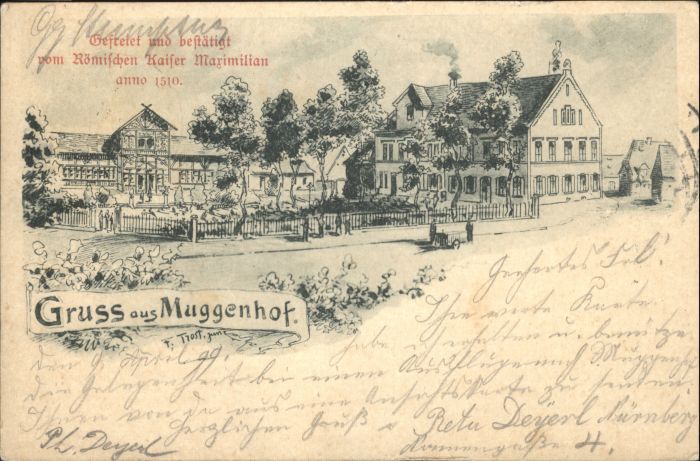 Gefreiet und bestätigt
vom Römischen Kaiser Maximilian
anno 1510.
Gruss aus Muggenhof.
Trost. junr
Geehrtes Frl.
Ihre werte Karte
den 9. April 99.
habe erhalten u. benütze
die Gelegenheit bei einem Ausfluge nach Muggenhof
Ihnen von da aus eine Ansichtskarte zu senden
Herzlichen Gruß Reta Deyerl Nürnberg
Ph. Deyerl
4.